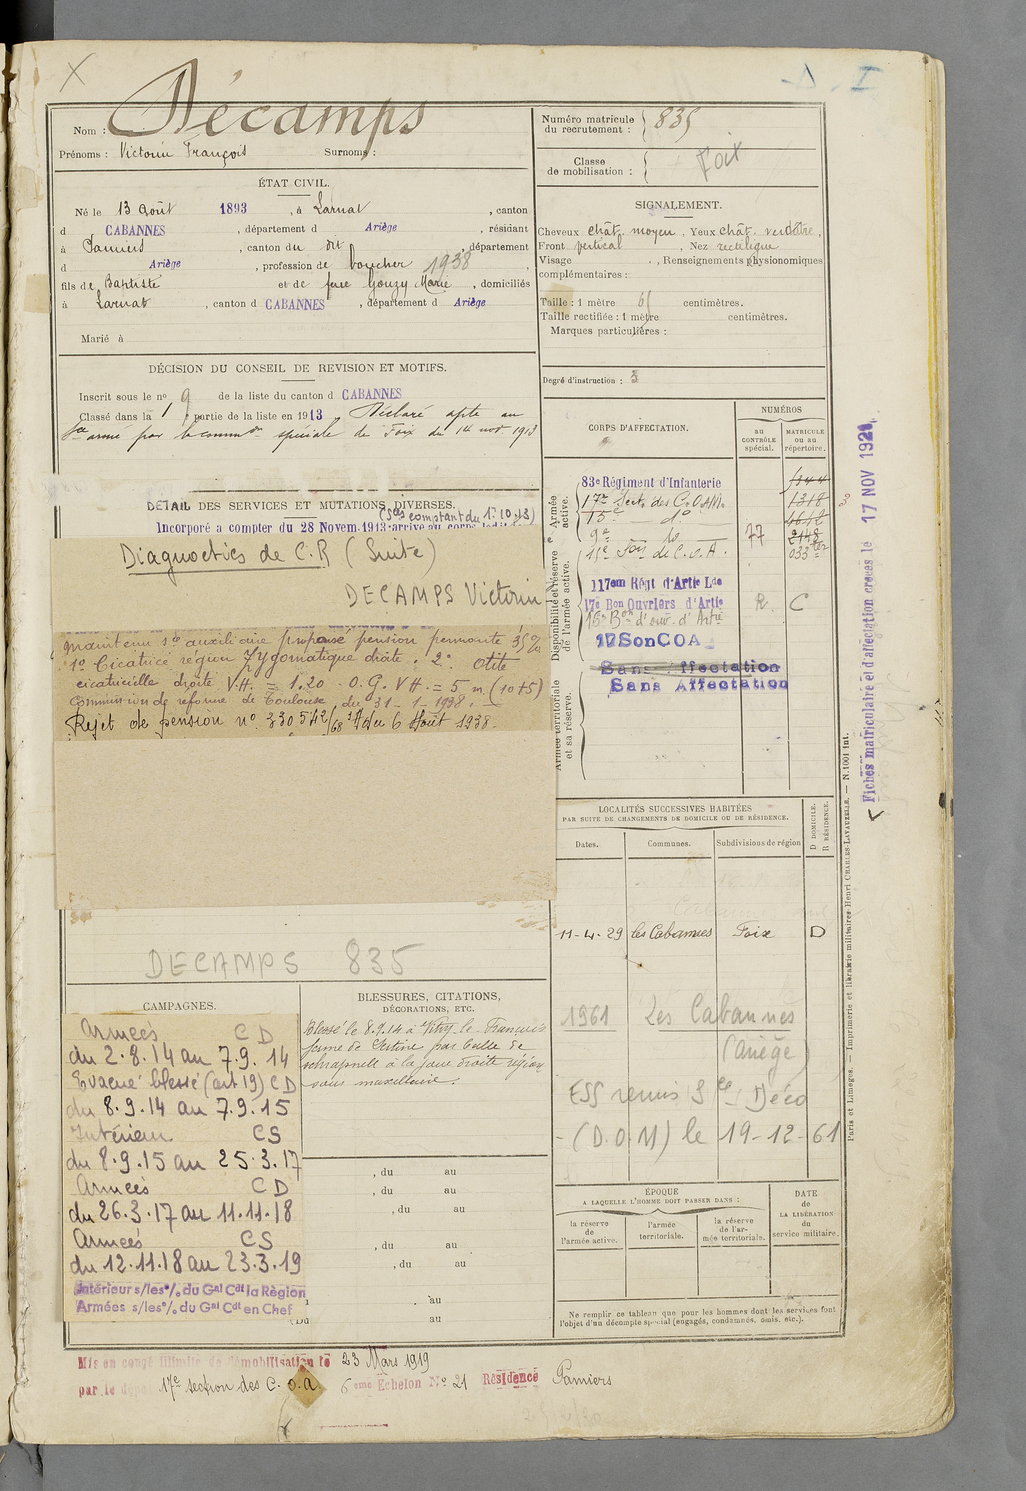 X
Nom : Décamps
Prénoms : Victorin François Surnoms :
ÉTAT CIVIL.
Né le 13 Août 1893, à Larnat, canton
d CABANNES, département d Ariège, résidant
à Pamiers, canton du dit, département
d Ariège, profession de boucher 1938,
fils de Baptiste et de feue Gouzy Marie, domiciliés
à Larnat, canton d CABANNES, département d Ariège
Marié à
DÉCISION DU CONSEIL DE REVISION ET MOTIFS.
Inscrit sous le no 9 de la liste du canton d CABANNES
Classé dans la 1 partie de la liste en 1913. Déclaré apte au
sce armé par la common spéciale de Foix du 14 nov 1913
DÉTAIL DES SERVICES ET MUTATIONS DIVERSES.
(Sces comptant du 1. 10. 13)
Incorporé à compter du 28 Novem. 1913 arrivé au corps ledit
Diagnostics de C.R (Suite)
DECAMPS Victorin
maintenu sce auxiliaire proposé pension permante 35%
1° Cicatrice région zygomatique droite. 2° Otite
cicatricielle droite V.H. = 1.20 O.G. VH. = 5 m. (10+5)
Commission de réforme de Toulouse du 31-1-1938. -
Rejet de pension no 330542/68 du 6 Août 1938-
DECAMPS 835
CAMPAGNES.
Armées CD
du 2.8.14 au 7.9.14
Evacué blessé (art 19) CD
du 8.9.14 au 7.9.15
Intérieur CS
du 8.9.15 au 25.3.17
Armées CD
du 26.3.17 au 11.11.18
Armées CS
du 12.11.18 au 23.3.19
Intérieur s/les o/. du Gal Cdt la Région
Armées s/les o/. du Gal Cdt en Chef
BLESSURES, CITATIONS,
DÉCORATIONS, ETC.
Blessé le 8.9.14 à Vitry-le-François
ferme de par balle de
schrapnell à la face droite région
sous maxillaire.
, du au
, du au
, du au
, du au
, du au
au
(Du au
Mis en congé illimité de démobilisation le 23 Mars 1919
par le dépôt 17e section des C.O.A. 6eme Echelon No 21 Résidence Pamiers
Numéro matricule
du recrutement : 835
Classe
de mobilisation : Foix
SIGNALEMENT.
Cheveux chât. moyen, Yeux chât. verdâtre,
Front vertical, Nez rectiligne
Visage , Renseignements physionomiques
complémentaires :
Taille : 1 mètre 61 centimètres.
Taille rectifiée : 1 mètre centimètres.
Marques particulières :
Degré d'instruction : 3
CORPS D'AFFECTATION.
NUMÉROS
AU CONTRÔLE spécial.
MATRICULE ou au répertoire.
Armée active.
Disponibilité et réserve de l'armée active.
Armée territoriale et sa réserve.
83e Régiment d'Infanterie
17e Secton des C.O.A.M. 1318
15e do
9e do 77 2148
11e Son de C.O.A. 033ter
117em Régt d'Artie Lde
17e Bon Ouvriers d'Artie R C
15e Bon d'ouv. d'Artie
17 Son COA
Sans Affectation
Sans Affectation
LOCALITÉS SUCCESSIVES HABITÉES
PAR SUITE DE CHANGEMENTS DE DOMICILE OU DE RÉSIDENCE.
Dates. Communes. Subdivisions de région
D DOMICILE.
R RÉSIDENCE.
11-4-29 les Cabannes Foix D
1961 Les Cabannes
(Ariège)
ESS remis Sce Déco
- (D.O.M) le 19-12-61
ÉPOQUE
A LAQUELLE L'HOMME DOIT PASSER DANS :
la réserve de l'armée active.
l'armée territoriale.
la réserve de l'armée territoriale.
DATE
de
LA LIBÉRATION
du
service militaire.
Ne remplir ce tableau que pour les hommes dont les services font
l'objet d'un décompte spécial (engagés, condamnés, omis, etc.).
Paris et Limoges. — Imprimerie et librairie militaires Henri CHARLES-LAVAUZELLE. — N. 1001 int.
Fiches matriculaire et d'affectation créées le 17 NOV 1921